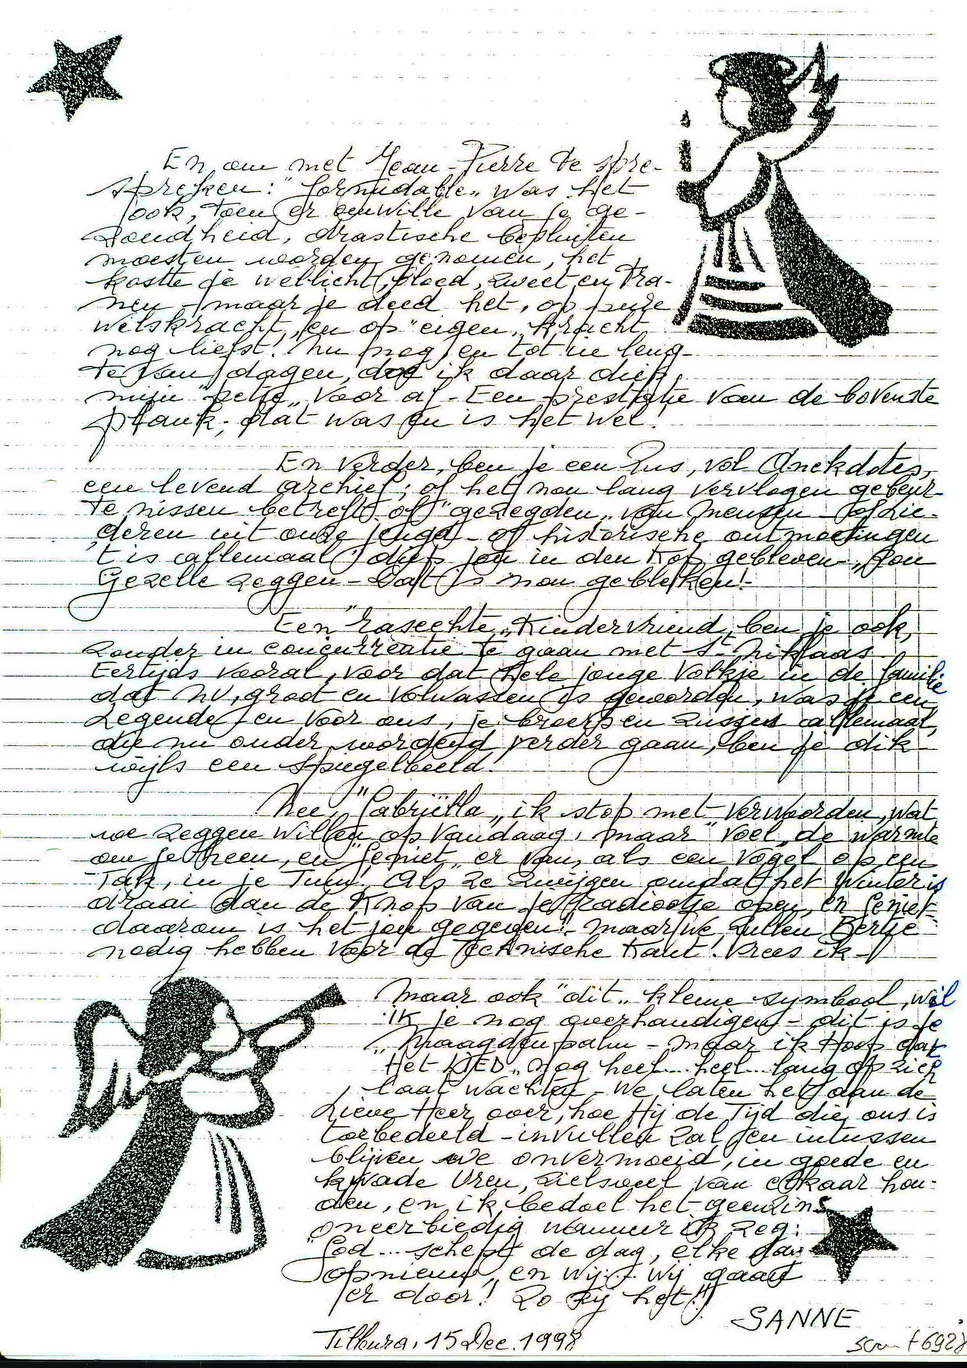 En om met Jean-Pierre te spre-
spreken: "formidable" was het
ook, toen er omwille van je ge-
zondheid, drastische besluiten
moesten worden genomen, het
kostte je wellicht bloed, zweet en tra-
nen - maar je deed het, op pure
wilskracht, en op "eigen" kracht
nog liefst! Nu nog, en tot in leng-
te van dagen, doe ik daar diep,
mijn "petje" voor af - Een prestatie van de bovenste
plank, dat was en is het wel.
En verder, ben je een Zus, vol Anekdotes,
een levend archief; of het nou lang vervlogen gebeur-
tenissen betreft of "gezegden" van mensen - of lie-
deren uit onze jeugd - of historische ontmoetingen
't is allemaal diep jou in den Kop gebleven - zou
Gezelle zeggen - Dat is nou gebleken!
Een "raséchte" Kindervriend, ben je ook,
zonder in concurreatie te gaan met St Niklaas
Eertijds vooral, voor dat hele jonge Volkje in de familie
dat nu, groot en volwassen is geworden, was je een
Legende - en voor ons, je broers en zusjes allemaal,
die nu ouder wordend, verder gaan, ben je dik-
wijls een spiegelbeeld.
Nee "Gabriëlla" ik stop met verwoorden, wat
we zeggen willen op vandaag, maar "voel" de warmte
om je heen, en "Geniet" er van, als een vogel op een
Tak, in je Tuin! Als ze zwijgen omdat het Winter is
draai dan de Knop van je Radiootje open, en Geniet
daarom is het jou gegeven! maar we zullen Bertje
nodig hebben voor de Technische Kant! vrees ik -
Maar ook "dit" kleine symbool, wil
ik je nog overhandigen - dit is je
"Maagdenpalm - maar ik Hoop dat
Het LIED" nog heel... heel... lang op zich
laat wachten - We laten het aan de
Lieve Heer over, hoe Hij de Tijd die ons is
toebedeeld - invullen zal, en intussen
blijven we onvermoeid, in goede en
kwade Uren, zielsveel van elkaar hou-
den, en ik bedoel het geenzins
oneerbiedig wanneer ik zeg:
"God... schept de dag, elke dag
opnieuw, en Wij... Wij gaan
er door! Zo zij het!"
SANNE
Tilburg, 15 Dec. 1998
scan f6928